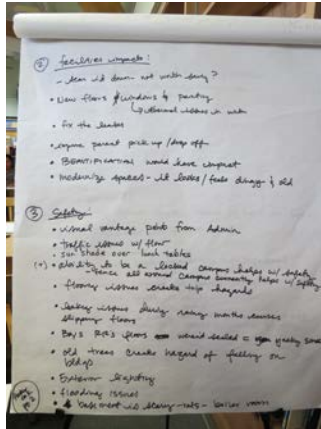 ② facilities impacts:
- tear it down - not worth saving?
• New floors & windows & painting
↳ thermal issues in
• fix the leaks
• improve parent pick up / drop off
• BEAUTIFICATION would have impact
• modernize spaces - it looks / feels dingy & old
③ Safety:
• visual vantage point from Admin
• traffic issues w/ flow
• sun shade over lunch tables
(+) • ability to be a locked campus helps w/ safety
- fence all around campus currently helps w/ safety
• flooring issues create trip hazards
• leaky issues during rainy months causes
slippery floors
• Boys RR's floors sealed = smell
• old trees create hazard of falling on
bldgs
• Exterior lighting
• flooding issues
• basement is scary - rats - boiler room